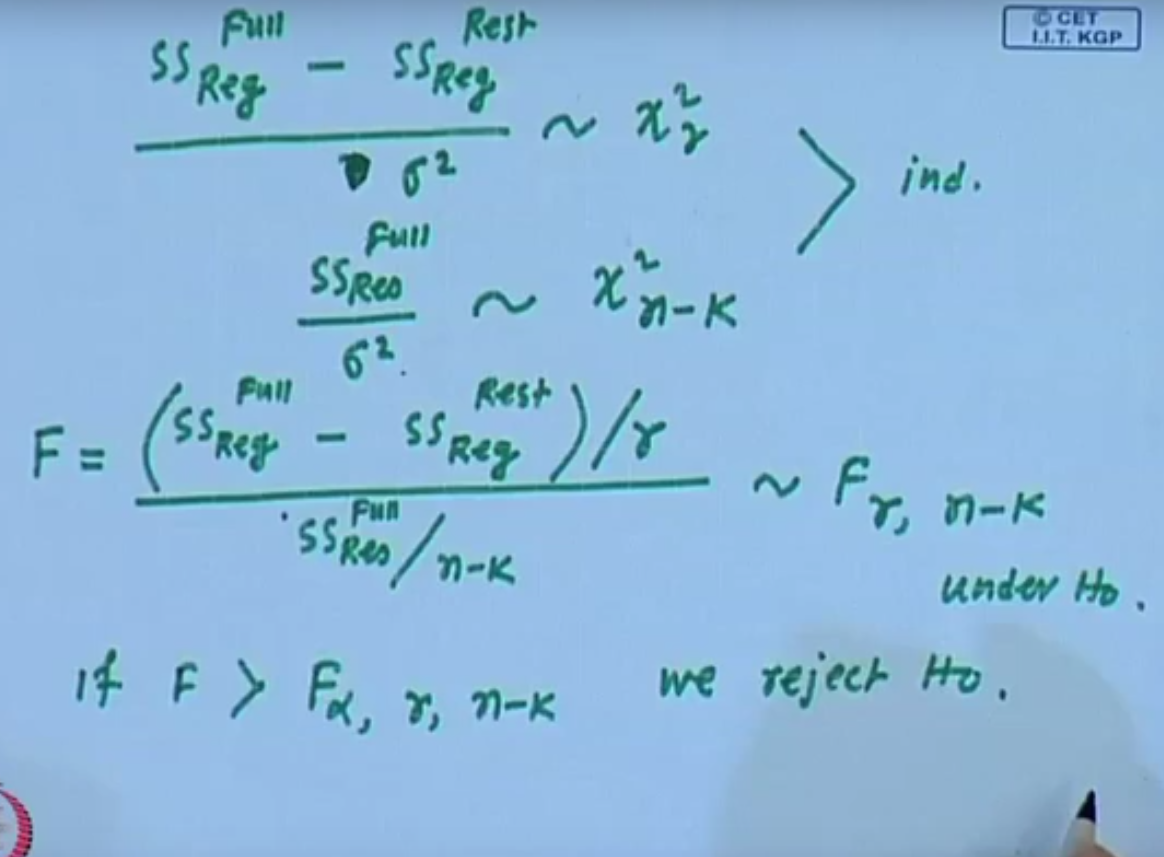 © CET
I.I.T. KGP
SS_Reg^Full − SS_Reg^Rest / σ² ~ χ²_r
ind.
SS_Res^Full / σ² ~ χ²_n-k
F = (SS_Reg^Full − SS_Reg^Rest)/r / SS_Res^Full/n-k ~ F_r, n-k
under Ho.
if F > F_α, r, n-k we reject Ho.